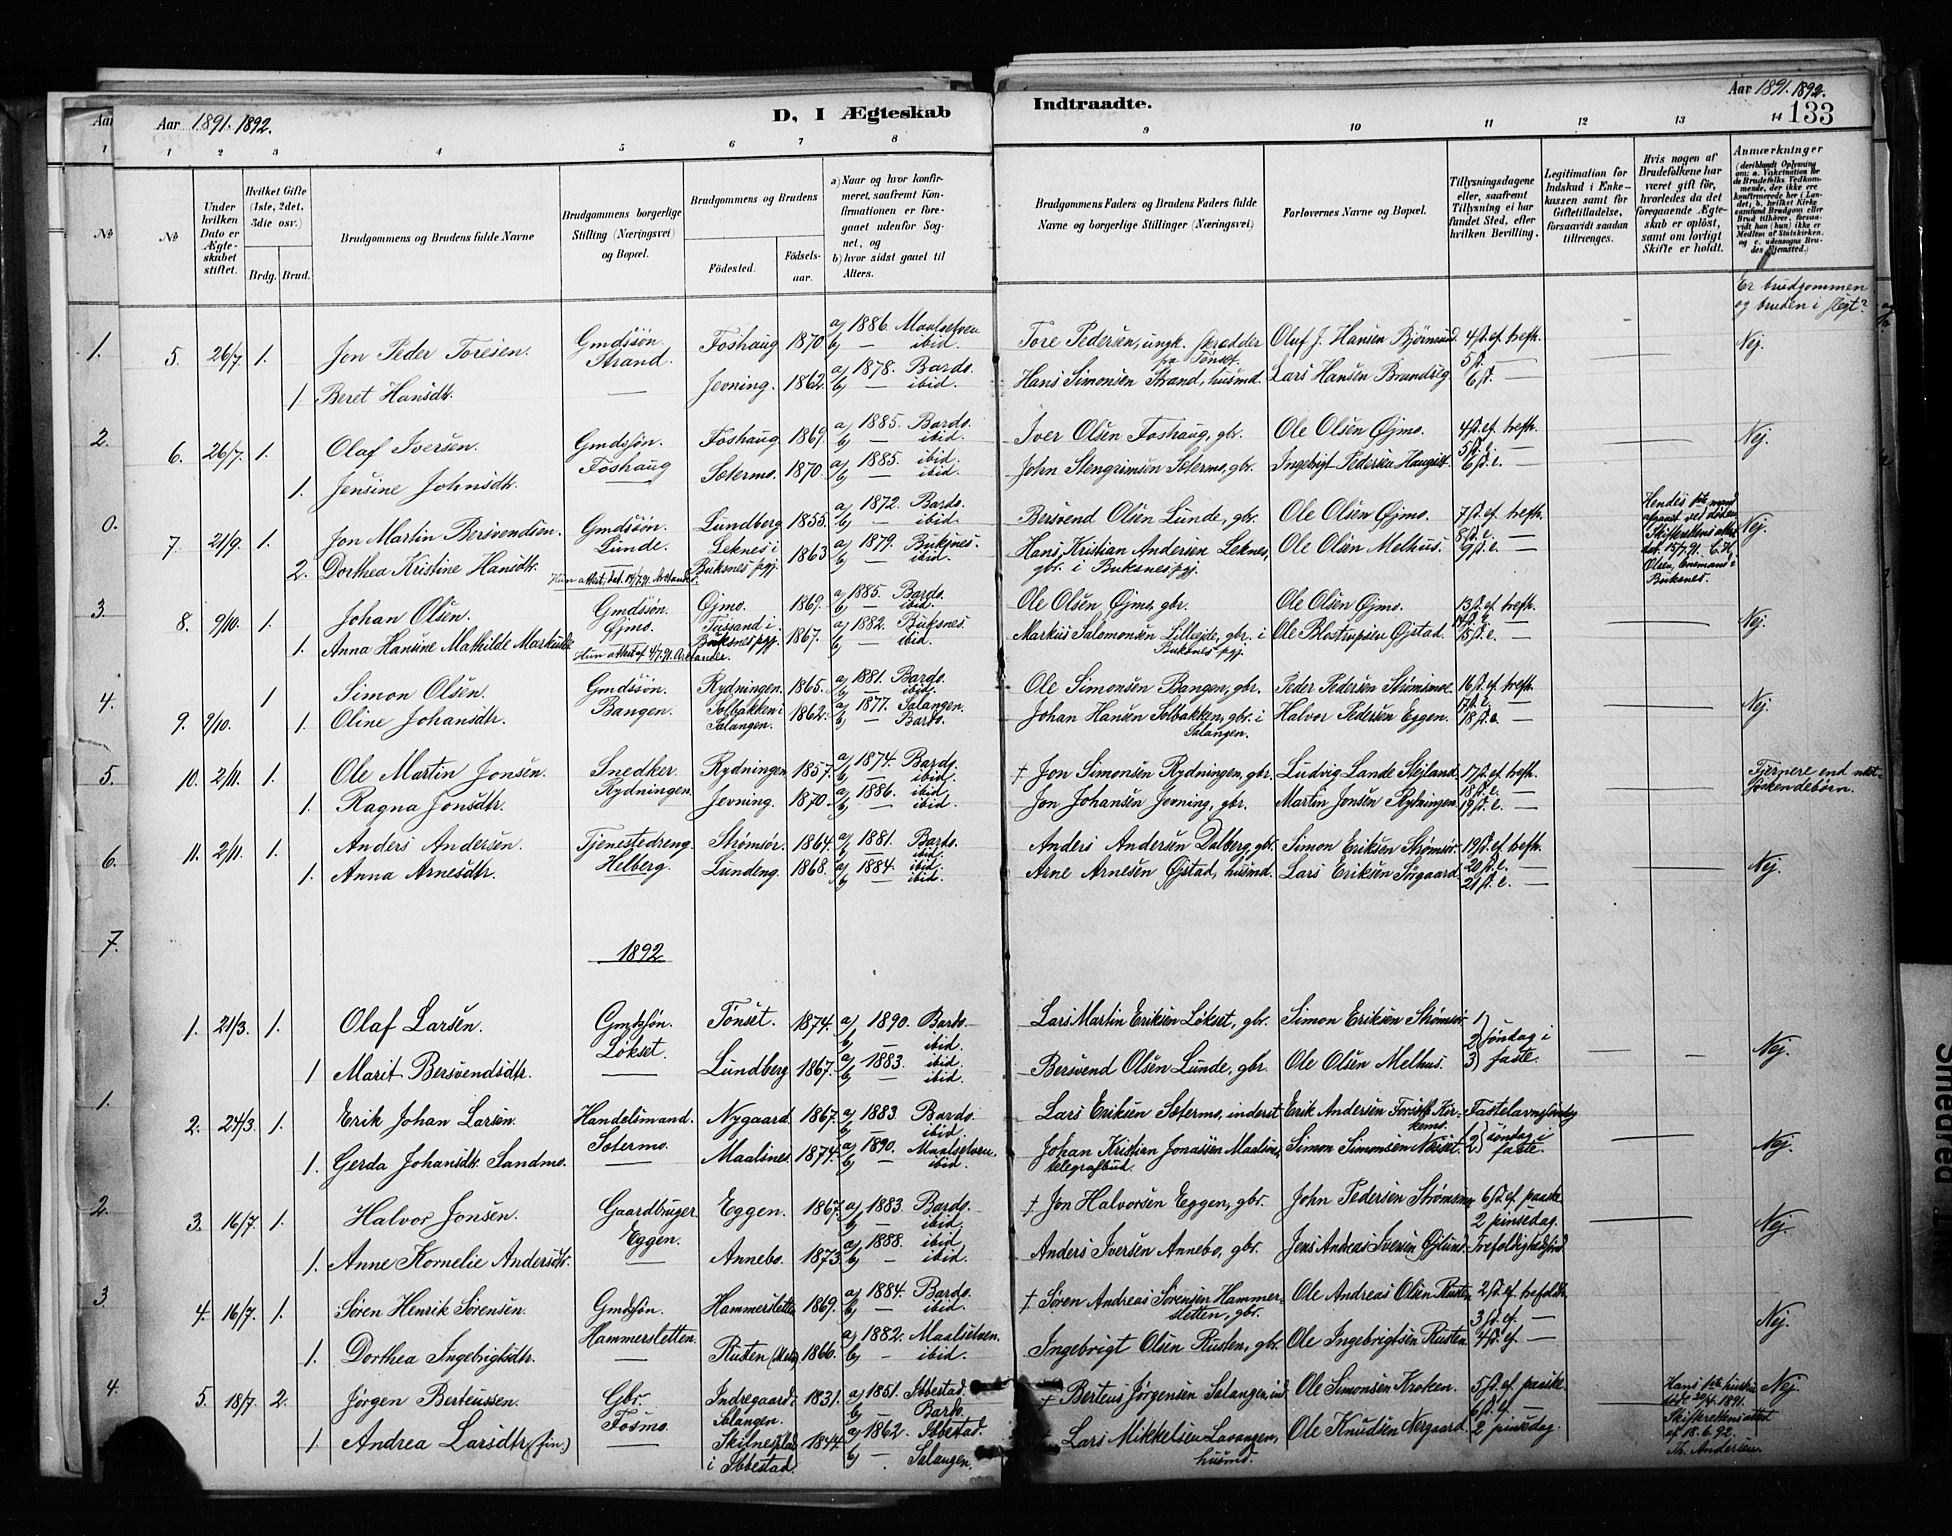 Aar 1891. 1892.
D, I Ægteskab Indtraadte.
Aar 1891. 1892.
133
1 2 3 4 5 6 7 8 9 10 11 12 13 14
No
Under hvilken Dato er Ægteskabet stiftet.
Hvilket Gifte (1ste, 2det, 3die osv.)
Brdg. Brud.
Brudgommens og Brudens fulde Navne
Brudgommens borgerlige Stilling (Næringsvei) og Bopæl.
Brudgommens og Brudens
Födested.
Födselsaar.
a) Naar og hvor konfirmeret, saafremt Konfirmationen er foregaaet udenfor Sognet, og
b) hvor sidst gaaet til Alters.
Brudgommens Faders og Brudens Faders fulde Navne og borgerlige Stillinger (Næringsvei)
Forlovernes Navne og Bopæl.
Tillysningsdagene eller, saafremt Tillysning ei har fundet Sted, efter hvilken Bevilling.
Legitimation for Indskud i Enkekassen samt for Giftetilladelse, forsaavidt saadan tiltrænges.
Hvis nogen af Brudefolkene har været gift för, hvorledes da det foregaaende Ægteskab er oplöst, samt om lovligt Skifte er holdt.
Anmærkninger
Er brudgommen og bruden i slegt?
5. 26/7. 1. Jon Peder Toresen. Gmdssøn. Strand. Foshaug 1870 a) 1886. Maalselven b) — ibid. Tore Pedersen, ungk. skrædder fra Tønset. Oluf J. Hansen Bjørnsund. 4 s. ef. trefh. Nej.
1 Beret Hansdtr. — Jevning. 1862. a) 1878. Bardo. b) — ibid. Hans Simonsen Strand, husmd. Lars Hansen Brandseg. 5 s. 6 s. —
6. 26/7. 1. Olaf Iversen. Gmdssøn. Foshaug Foshaug 1869. a) 1885. Bardo. b) — ibid. Iver Olsen Foshaug, gbr. Ole Olsen Øjmo. 4 s. ef. trefh. Nej.
1. Jensine Johnsdtr. — Sætermo. 1870. a) 1885. ibid. b) — ibid. John Stengrimsen Sætermo, gbr. Ingebrigt Pedersen 5 s. e. 6 s. e. —
7. 21/9. 1. Jon Martin Bersvendsen. Gmdssøn. Lunde. Lundberg 1855. a) 1872. Bardo. b) — ibid. Bersvend Olsen Lunde, gbr. Ole Olsen Øjmo. 7 s. ef. trefh. Hendes 1ste mand afgaaet ved døden. Skifterettens attest dat. 15/7 91. Nej.
2. Dorthea Kristine Hansdtr. Leknes i Buksnes pgj. 1863 a) 1879. Buksnes. b) — ibid. Hans Kristian Andersen Leknes, gbr. i Buksnes pgj. Ole Olsen Melhus. 8 s. e. 9 s. e. — Olsen, Buksnes.
8. 9/10. 1. Johan Olsen. Gmdssøn. Øjmo. Øjmo. 1869. a) 1885. Bardo. b) — ibid. Ole Olsen Øjmo, gbr. Ole Olsen Øjmo. 13 s. ef. trefh. Nej.
1. Anna Hansine Mathilde Markusdtr. Buksnes pgj. 1867. a) 1882. Buksnes. b) — ibid. Markus Salomonsen Lilleeide, gbr. i Buksnes pgj. Ole Blostrupsen Øjstad. 14 s. e. 15 s. e. —
9. 9/10. 1 Simon Olsen. Gmdssøn. Bangen. Rydningen. 1865. a) 1881. Bardo. b) — ibid. Ole Simonsen Bangen, gbr. Peder Pedersen Strømsmoe. 16 s. ef. trefh. Nej.
1. Oline Johansdtr. Solbakken i Salangen. 1862. a) 1877. Salangen. b) — Bardo. Johan Hansen Solbakken, gbr. i Salangen. Halvor Pedersen Eggen. 17 s. e. 18 s. e. —
10. 2/11. 1. Ole Martin Jonsen. Snedker. Rydningen. Rydningen 1857. a) 1874. Bardo. b) — ibid. † Jon Simonsen Rydningen, gbr. Ludvig Lande Stejland. 17 s. ef. trefh. Fjernere end næstsøskendebørn.
1. Ragna Jonsdtr. Jevning. 1870. a) 1886. ibid. b) — ibid. Jon Johansen Jevning, gbr. Martin Jonsen Rydningen. 18 s. e. 19 s. e. —
11. 2/11. 1. Anders Andersen. Tjenestedreng Helberg. Strømsør. 1864. a) 1881. Bardo. b) — ibid. Anders Andersen Dalberg, gbr. Simon Eriksen Strømsør. 19 s. ef. trefh. Nej.
1. Anna Arnesdtr. Lundeng. 1868. a) 1884. ibid. b) — ibid. Arne Arnesen Øjstad, husmd. Lars Eriksen Sørgaard. 20 s. e. 21 s. e. —
1892
1. 21/3. 1. Olaf Larsen. Gmdssøn. Løkset. Tønset. 1874. a) 1890. Bardo. b) — ibid. Lars Martin Eriksen Løkset, gbr. Simon Eriksen Strømsør. 1) 2) 3) søndag i faste. Nej.
1 Marit Bersvendsdtr. — Lundberg 1867. a) 1883. ibid. b) — ibid. Bersvend Olsen Lunde, gbr. Ole Olsen Melhus.
2. 24/3. 1. Erik Johan Larsen. Handelsmand. Sætermo. Nygaard. 1867. a) 1883 Bardo. b) — ibid. Lars Eriksen Sætermo, inderst Erik Andersen Kirkemo. Fastelavnssøndag Nej.
1. Gerda Johansdtr. Sandmo. — Maalsnes. 1874. a) 1890. Maalselven. b) — ibid. Johan Kristian Jonassen Maalsnes, telegrafbud. Simon Simonsen 1) 2) søndag i faste.
3. 16/7. 1. Halvor Jonsen. Gaardbruger. Eggen. Eggen. 1867. a) 1883. Bardo. b) — ibid. † Jon Halvorsen Eggen, gbr. John Pedersen 6 s. ef. paaske 2 pinsedag. Nej.
1. Anne Kornelie Andersdtr. — Annebo. 1873. a) 1888. ibid. b) — ibid. Anders Iversen Annebo, gbr. Jens Andreas Iversen Øjlund. Trefoldighedssønd.
4. 16/7. 1. Søren Henrik Sørensen. Gmdssøn. Hammersletten. Hammersletten 1869. a) 1884. Bardo. b) — ibid. † Søren Andreas Sørensen Hammersletten, gbr. Ole Andreas Olsen Rusten, 2 s. ef. trefoldh. Nej.
1. Dorthea Ingebrigtsdtr. — Rusten 1866. a) 1882. Maalselven. b) — ibid. Ingebrigt Olsen Rusten, gbr. Ole Ingebrigtsen Rusten. 3 s. ef. — 4 s. ef. —
5. 18/7. 2. Jørgen Berteussen. Gbr. Fosmo. Indregaard, Salangen. 1831. a) 1851. Ibbestad. b) — Bardo. † Berteus Jørgensen Salangen, ind. Ole Simonsen Kroken. 5 s. ef. paaske Hans 1ste hustru døde 20/4. 1891. Skifterettens attest af 18.6.92. Th. Andersen Nej.
1 Andrea Larsdtr. (fin.) — i Ibbestad. 1844. a) 1862. Ibbestad. b) — Salangen. † Lars Mikkelsen Lavangen, husmd. Ole Knudsen Nergaard. 6 s. ef. — 2 pinsedag.